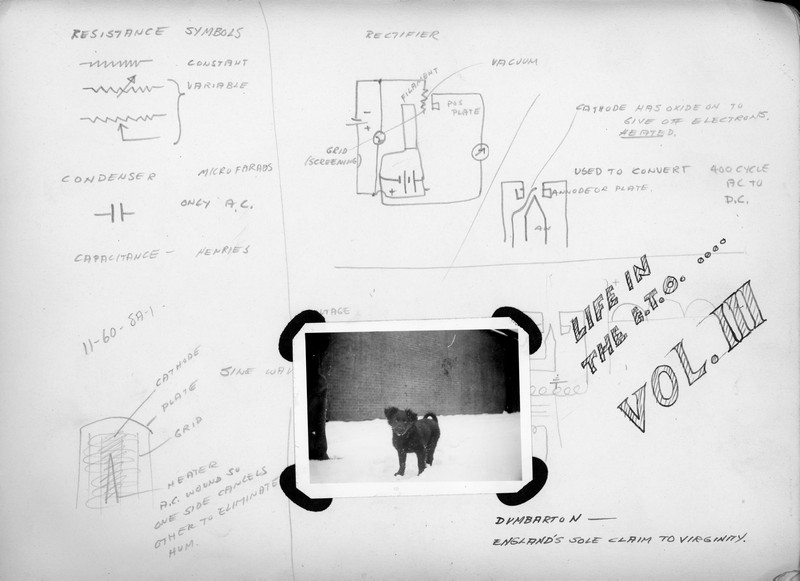 RESISTANCE SYMBOLS
CONSTANT
VARIABLE
CONDENSER MICROFARADS
ONLY A.C.
CAPACITANCE — HENRIES
11-60-8A-1.
SINE WA
CATHODE
PLATE
GRID
HEATER
A.C. WOUND SO
ONE SIDE CANCELS
OTHER TO ELIMINATE
HUM.
RECTIFIER
VACUUM
FILAMENT
POS
PLATE
- 
+
GRID
(SCREENING)
+ -
CATHODE HAS OXIDE ON TO
GIVE OFF ELECTRONS.
HEATED.
USED TO CONVERT 400 CYCLE
ANNODE OR PLATE. AC TO
D.C.
LIFE IN
THE E.T.O. ....
VOL. IIII
DUMBARTON —
ENGLAND'S SOLE CLAIM TO VIRGINITY.